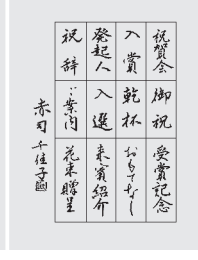 祝賀会 御祝 受賞記念
入賞 乾杯 おもてなし
発起人 入選 来賓紹介
祝辞 ご案内 花束贈呈
赤司千佳子